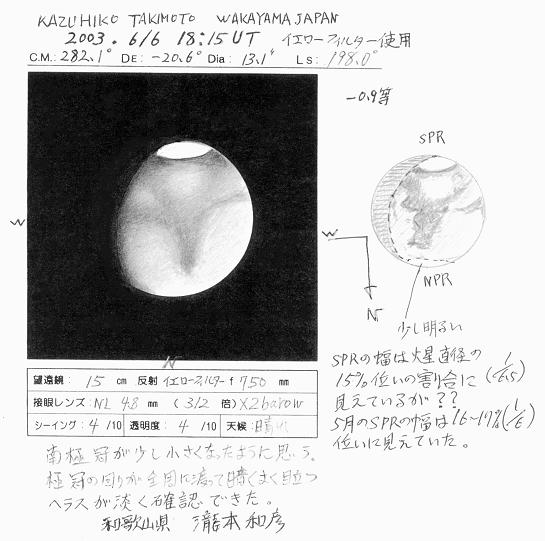 KAZUHIKO TAKIMOTO WAKAYAMA JAPAN
2003. 6/6 18:15 UT イエローフィルター使用
C.M: 282.1° DE: -20.6° Dia: 13.1" Ls: 198.0°
-0.9等
SPR
W
W
N
NPR
N
少し明るい
望遠鏡: 15 cm 反射 イエローフィルター f 750 mm
接眼レンズ: NL 4.8 mm (312 倍) ×2 barow
シーイング: 4/10 透明度: 4/10 天候: 晴れ
SPRの幅は火星直径の
15%位いの割合に
見えているが??
5月のSPRの幅は16~17%(1/6)
位いに見えていた。
南極冠が少し小さくなったように思う。
極冠の周りが全周に渡って暗くよく目立つ
ヘラスが淡く確認できた。
和歌山県 瀧本和彦